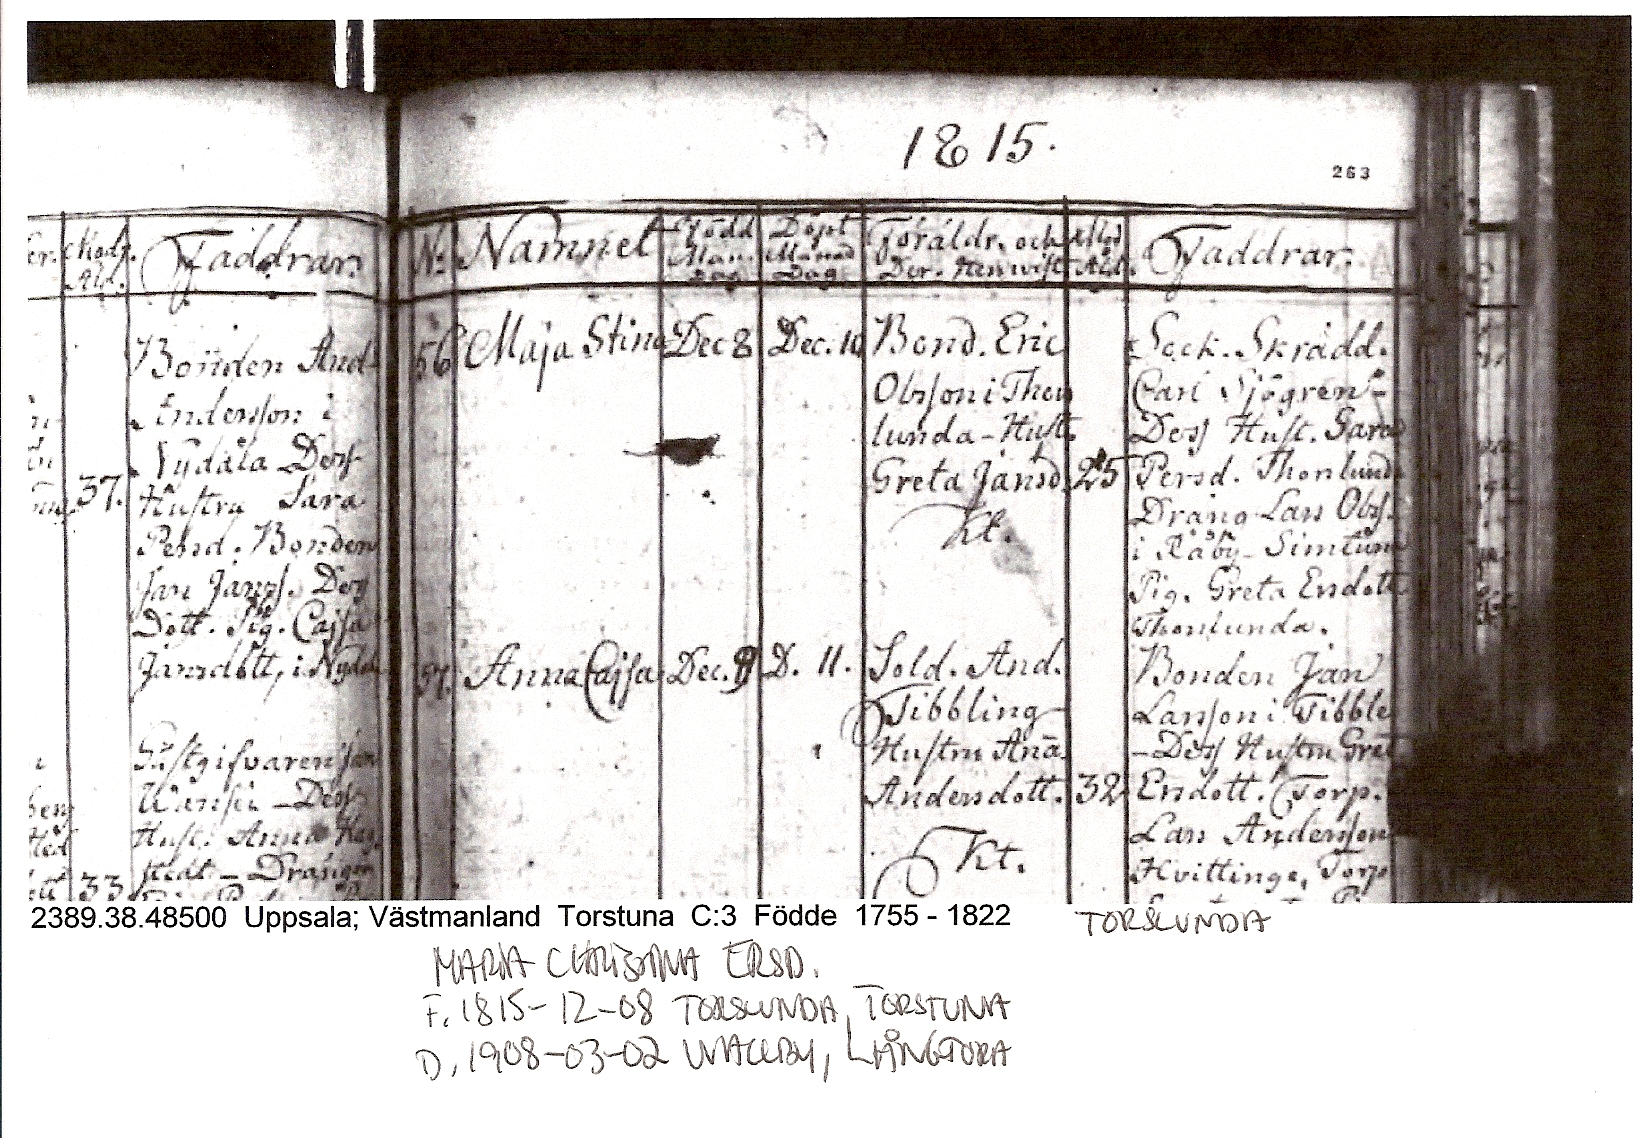 1815.
263
Modr. Ald.
Faddrar.
Bonden And-
Andersson i
Nydala Dess
37. Hustru Sara
Persd. Bonden
Jan Janss. Dess
Dott. Pig. Cajsa
Jansdott, i Nydal
Gästgifvaren Jan
Dess
Hust. Anna
33
No Namnet Född Mån. Dag Döpt Månad Dag Föräldr. och Der. Hemvist Mod. Ald. Faddrar.
56 Maja Stina Dec 8 Dec. 10 Bond. Eric
Olofsson i Thor
lunda - Hust.
Greta Jansd. 25
Kt.
Sock. Skrädd.
Carl Sjögren -
Dess Hust. Sara
Persd. Thorslunda
Dräng Lars Olofs.
i Råby - Simtuna
Pig. Greta Ersdott
Thorslunda.
57. Anna Cajsa Dec. 9 D. 11. Sold. And.
Tibbling
Hustru Ana
Andersdott. 32
Kt.
Bonden Jan
Larsson i Tibble
- Dess Hustru Gret
Ersdott. Torp.
Lars Andersson
Hvittinge, Torp
2389.38.48500 Uppsala; Västmanland Torstuna C:3 Födde 1755 - 1822
TORSLUNDA
MARIA CHRISTINA ERSD.
F. 1815-12-08 TORSLUNDA, TORSTUNA
D. 1908-03-02 VALLBY, LÅNGTORA